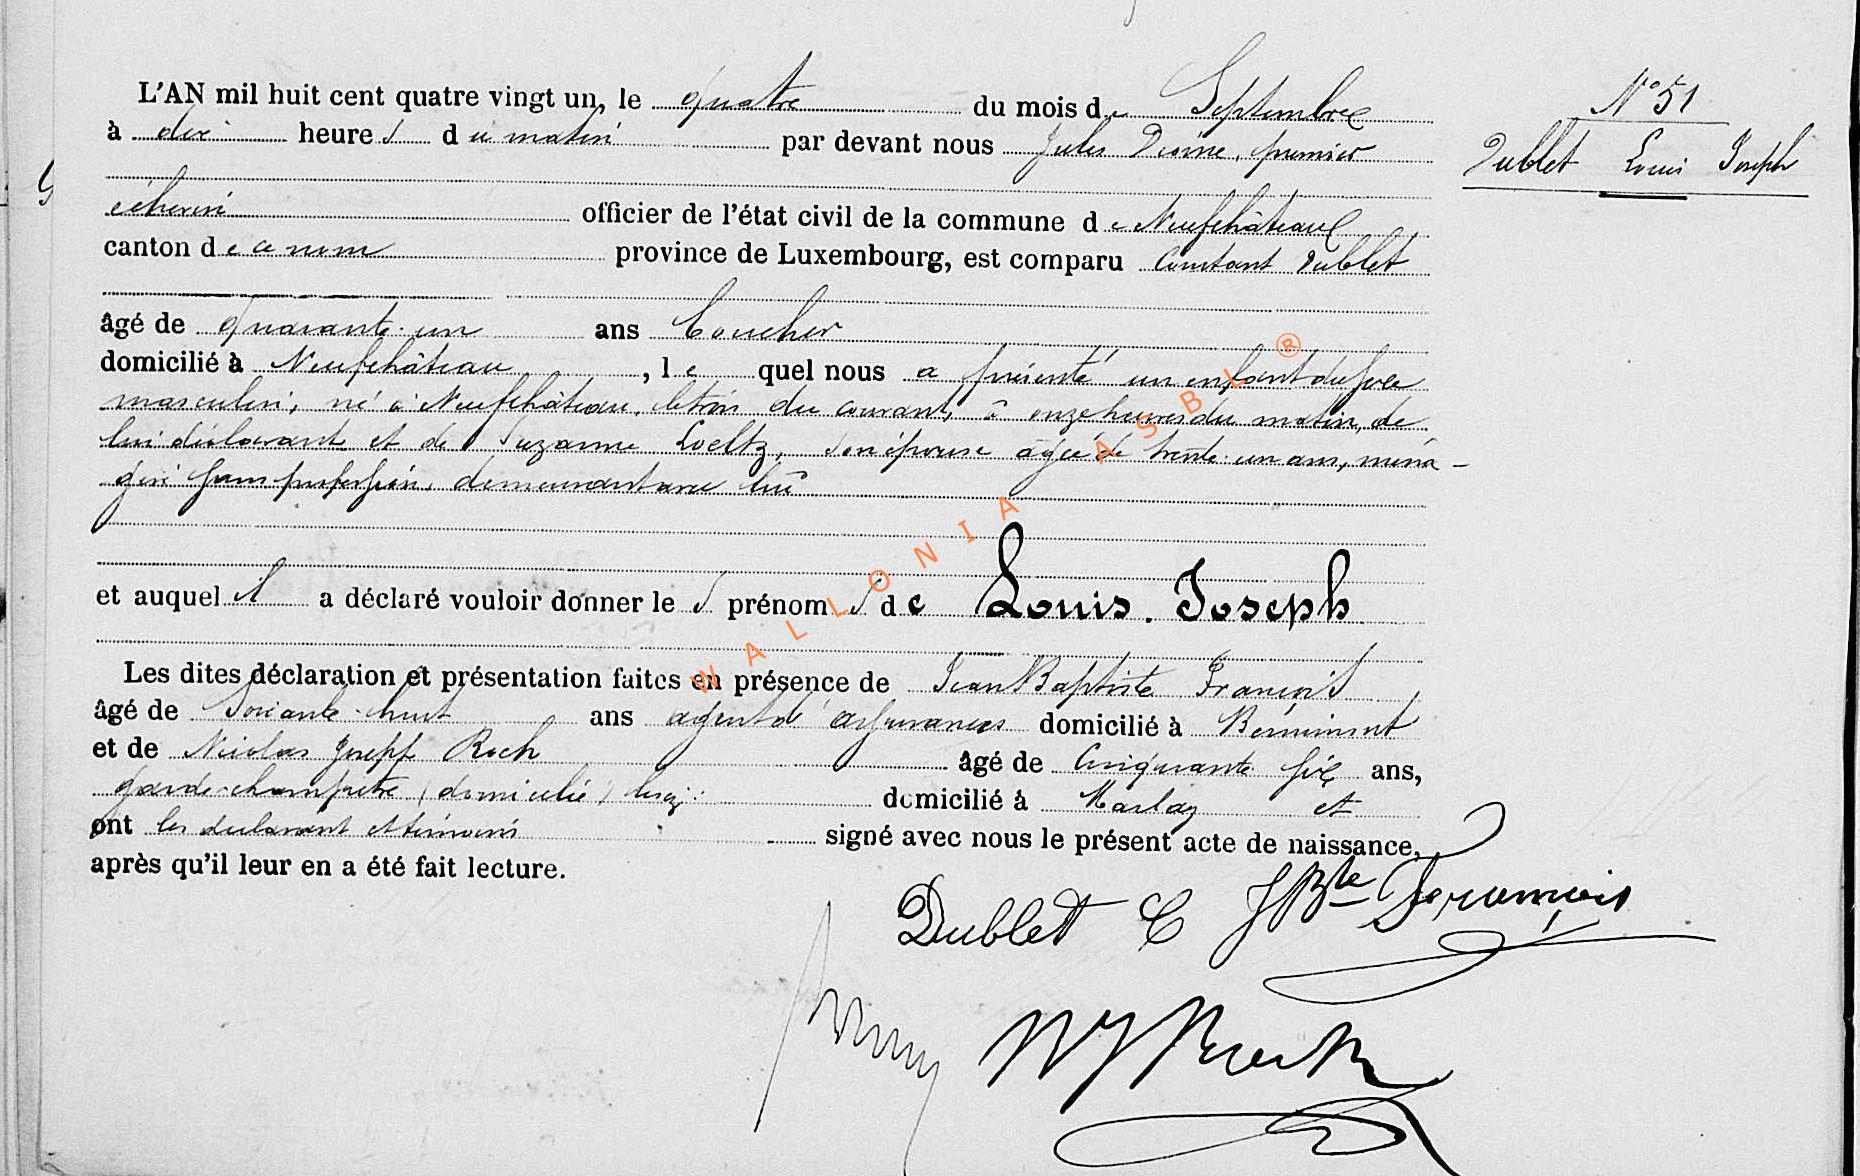 L'AN mil huit cent quatre vingt un, le quatre du mois de Septembre
N° 51
à dix heures du matin par devant nous Jules premier
Dublet Louis Joseph
échevin officier de l'état civil de la commune de Neufchâteau
canton de ce nom province de Luxembourg, est comparu Constant Dublet
âgé de quarante-un ans boucher
domicilié à Neufchâteau, lequel nous a présenté un enfant du sexe
masculin, né à Neufchâteau, le trois du courant, à onze heures du matin, de
lui déclarant et de Suzanne Loeltz, son épouse âgée de trente-un ans, ména-
gère sans profession, demeurant avec lui
et auquel il a déclaré vouloir donner les prénoms de Louis. Joseph
Les dites déclaration et présentation faites en présence de Jean Baptiste François,
âgé de Soixante-huit ans agent d'assurances domicilié à Bernimont
et de Nicolas Joseph Roch âgé de Cinquante six ans,
garde-champêtre (domicilié) domicilié à Marlay et
ont les déclarant et témoins signé avec nous le présent acte de naissance,
après qu'il leur en a été fait lecture.
Dublet C JBte François
NJ Roch
WALLONIA ASBL ®